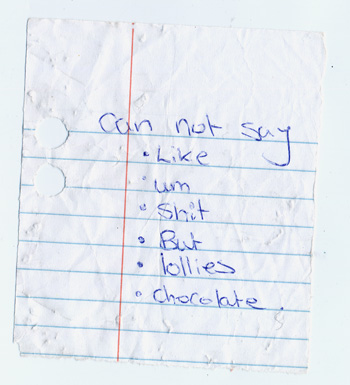 can not say
• Like
• um
• Shit
• But
• lollies
• chocolate.